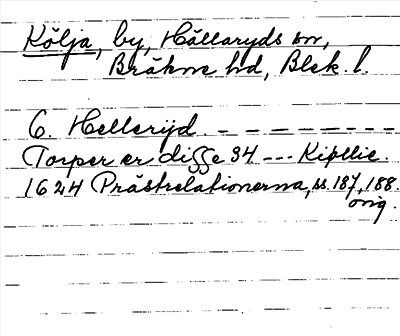 Kölja, by, Hällaryds sn,
Bräkne hd, Blek. l.
6. Hellerijd – – – – – – – –
Torper er digge 34 --- Kipllie.
1624 Prästrelationerna, ss. 187, 188.
orig.